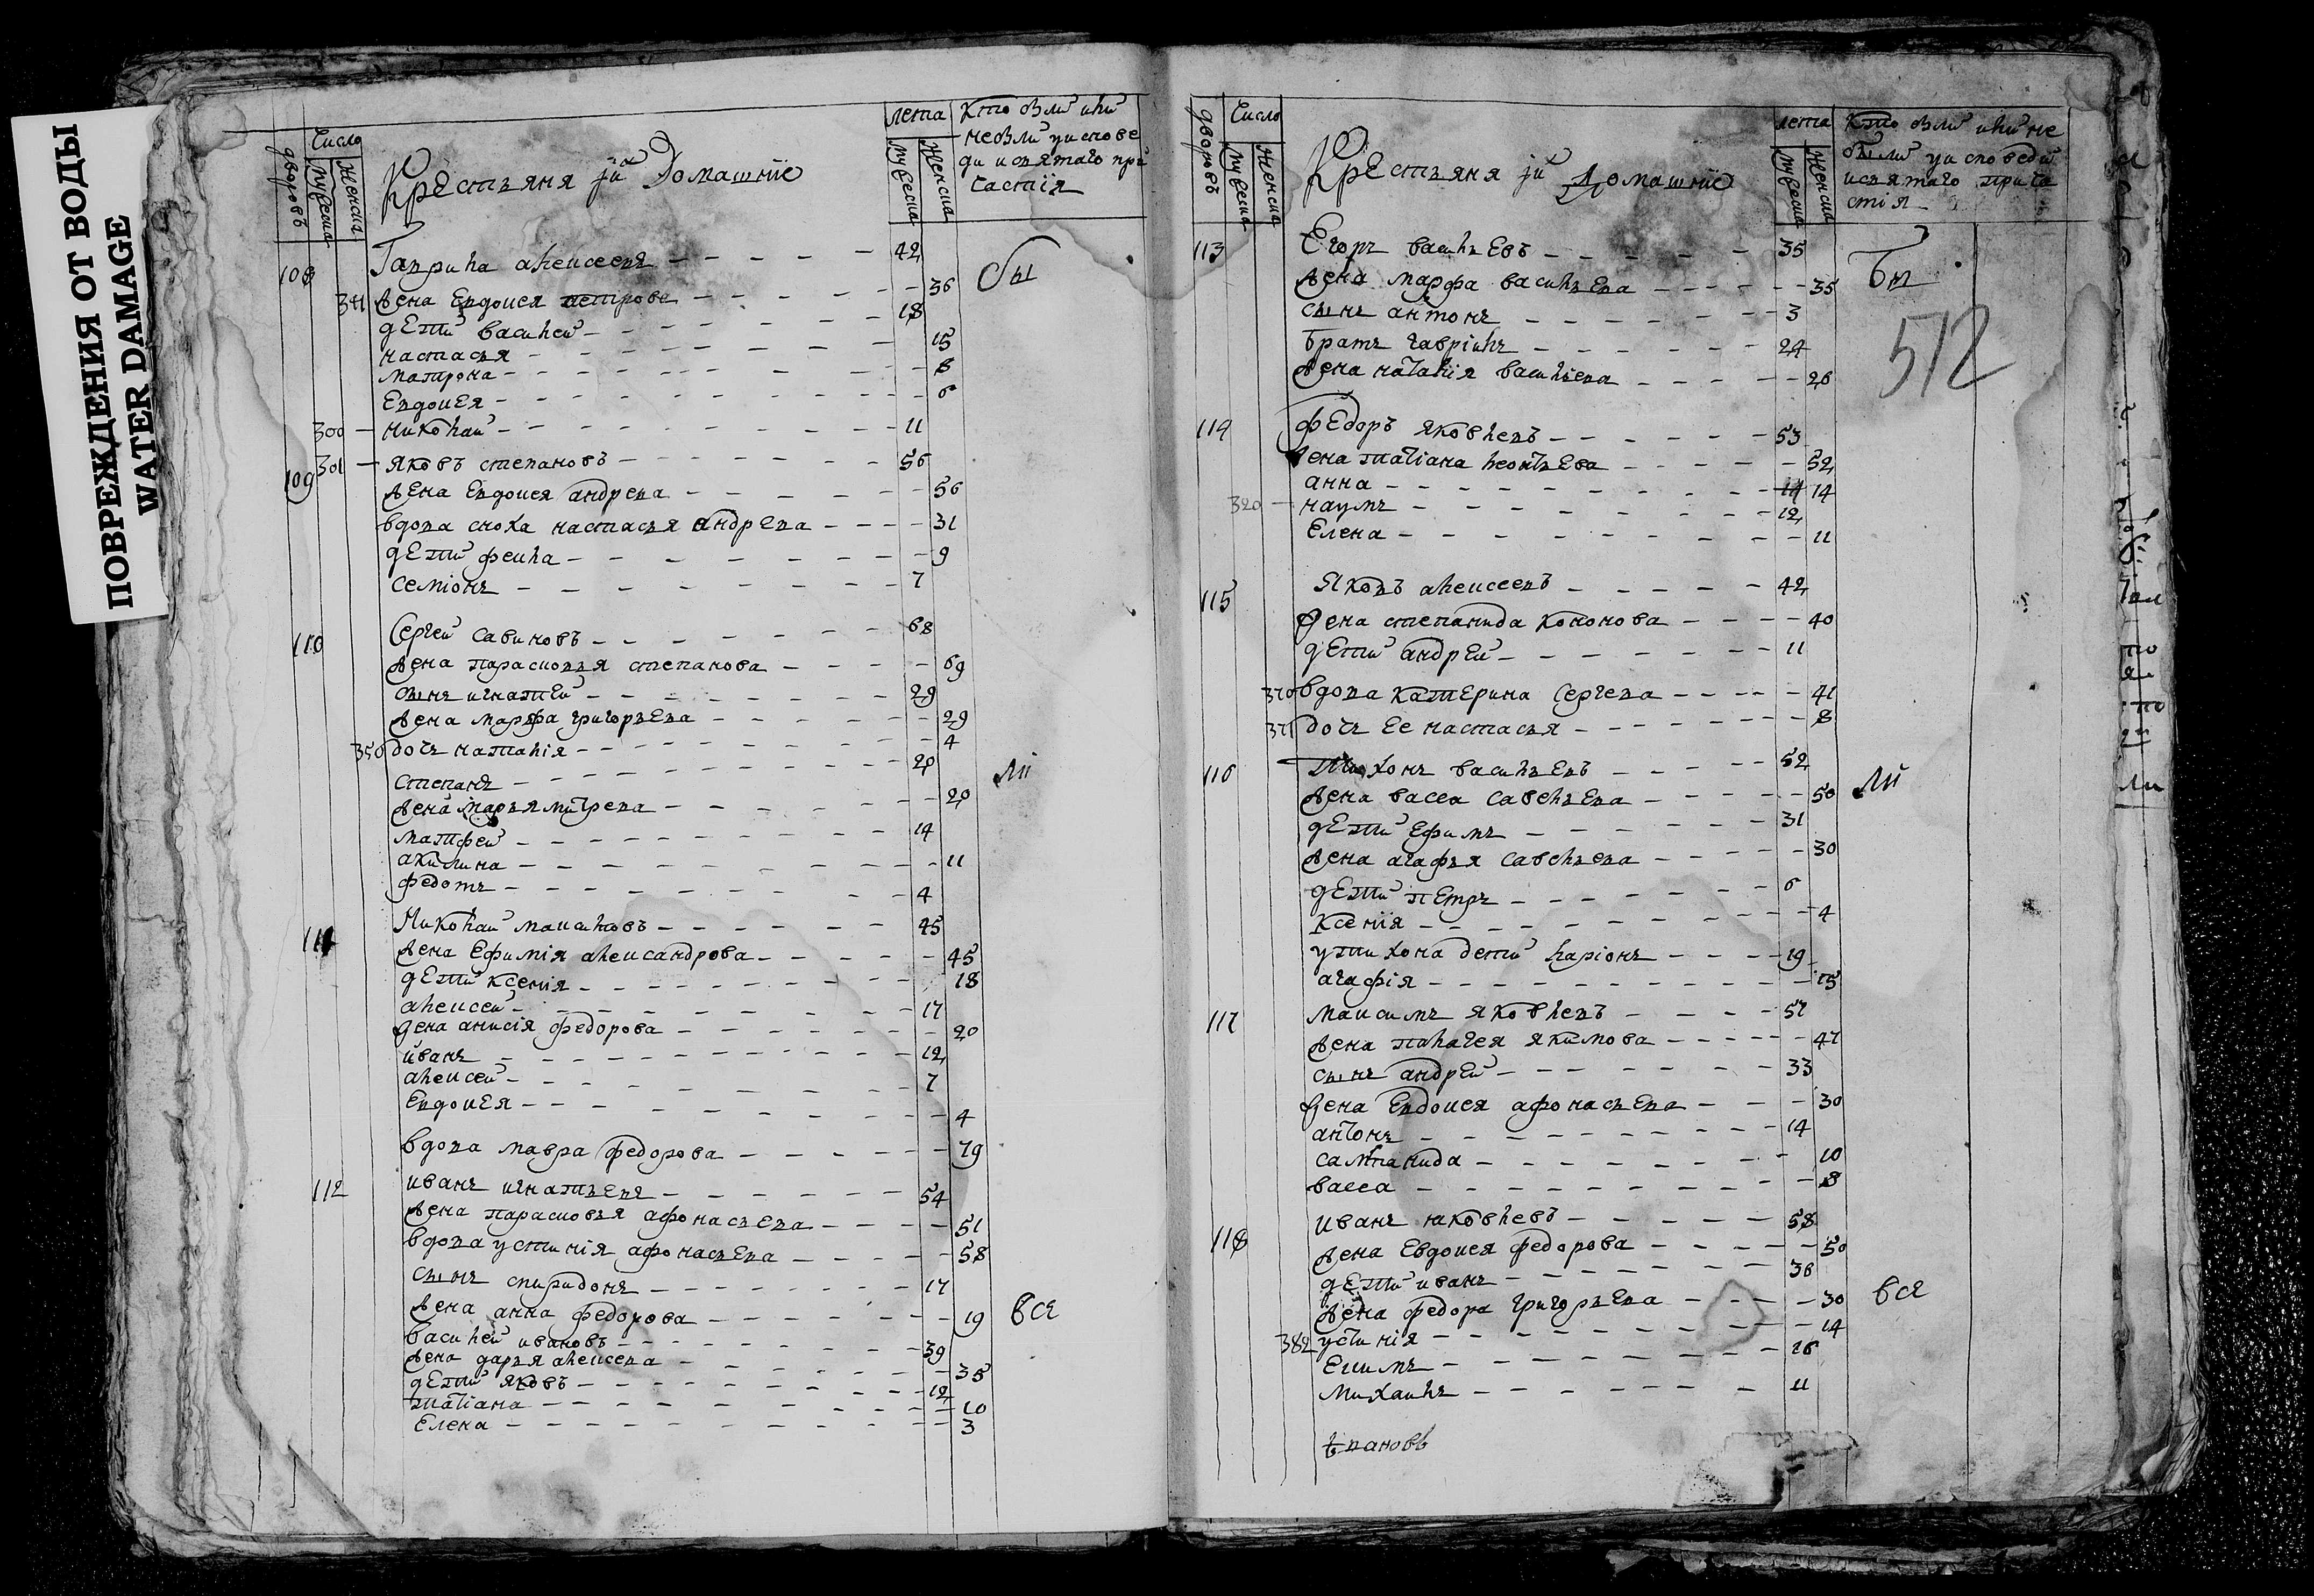 ПОВРЕЖДЕНИЯ ОТ ВОДЫ
WATER DAMAGE
дворовъ
Число
мужеска
женска
Крестьяня й Домашние
лета
мужеска
женска
Кто были или
небыли уиспове
ди исвятаго при
частия
108 Гаврила алексеевъ 42
341 жена Евдокея петрова 36
дети василей 18
настасья 15
матрона 8
Евдокея 6
300 николай 11
109 301 яковъ степановъ 56
жена Евдокея андрева 56
вдова сноха настасья андрева 31
дети фекла 9
семионъ 7
110 Сергей савиновъ 68
жена парасковья степанова 69
сынъ игнатей 29
жена марфа григорьева 29
350 дочь наталія 4
степанъ 20
жена марья митрева 20
матфей 14
акилина 11
федотъ 4
111 Николай 45
жена Ефимія александрова 45
дети ксенія 18
алексей 17
жена анисія федорова 20
иванъ 12
алексей 7
Евдокея 4
вдова мавра федорова 79
112 иванъ игнатьевъ 54
жена парасковья афонасьева 51
вдова устинія афонасьева 58
сынъ спиридонъ 17
жена анна федорова 19
василей ивановъ 39
жена дарья алексева 35
дети яковъ 12
татіана 10
Елена 3
бы
ли
все
дворовъ
Число
мужеска
женска
Крестьяня й Домашние
лета
мужеска
женска
Кто были или не
были уисповеди
исвятаго прича
стія
113 Егоръ васильевъ 35
жена марфа васильева 35
сынъ антонъ 3
братъ гавріилъ 24
жена наталія васильева 26
114 федоръ яковлевъ 53
жена татіана леонтьева 52
анна 14 14
320 наумъ 12
Елена 11
115 Яковъ алексеевъ 42
жена степанида кононова 40
дети андрей 11
370 вдова катерина Сергева 41
371 дочь ее настасья 8
116 Тихонъ васильевъ 52
жена васса савельева 50
дети ефимъ 31
жена агафья савельева 30
дети петръ 6
ксенія 4
утихона дети ларіонъ 19
агафія 15
117 максимъ яковлевъ 57
жена палагея якимова 47
сынъ андрей 33
жена Евдокея афонасьева 30
антонъ 14
10
васса 8
118 иванъ яковлевъ 58
жена Евдокея федорова 50
дети иванъ 36
жена федора григорьева 30
382 устинія 14
Екимъ 16
михаилъ 11
бы
ли
все
512